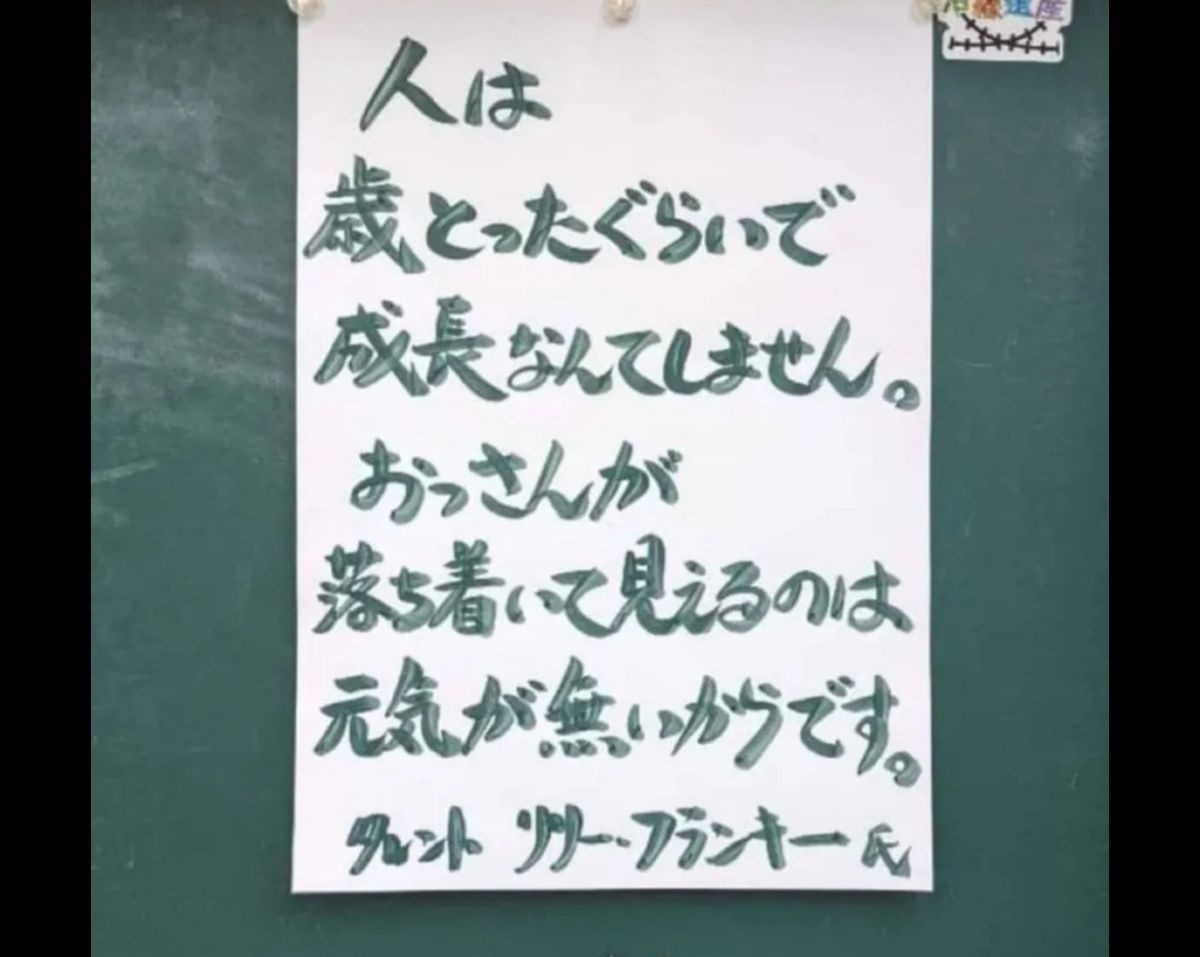 人は
歳とったぐらいで
成長なんてしません。
おっさんが
落ち着いて見えるのは
元気が無いからです。
タレント リリー・フランキー氏
遺産